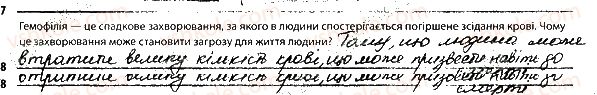 7
Гемофілія — це спадкове захворювання, за якого в людини спостерігається погіршене зсідання крові. Чому
це захворювання може становити загрозу для життя людини? Тому, що людина може
втратити велику кількість крові, що може призвести навіть до
8
отратити велику кількість крові, що може призвести навіть до
8
смерті